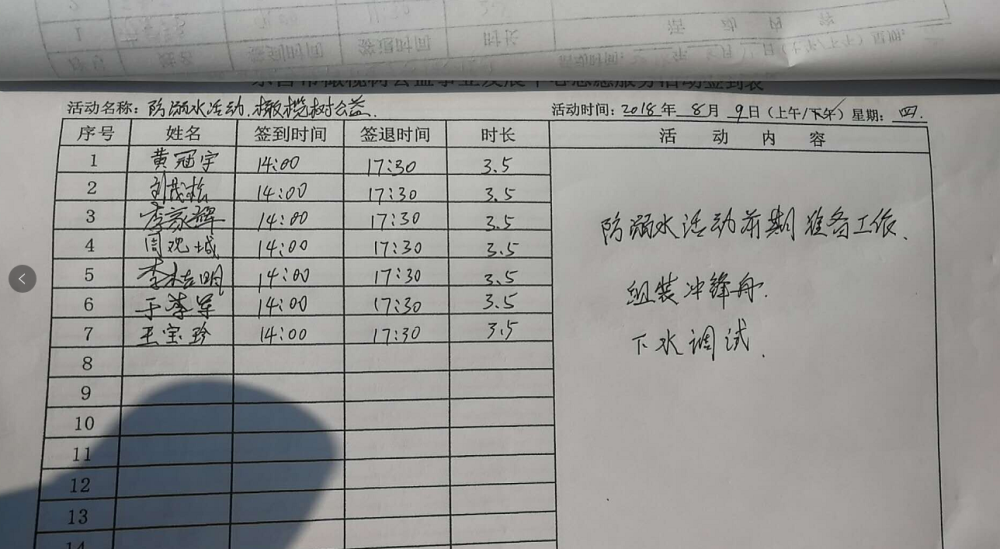 活动名称：防溺水活动.橄榄树公益. 活动时间：2018年 8月 9日（上午/下午）星期：四.
序号 姓名 签到时间 签退时间 时长 活动内容
1 黄冠宇 14:00 17:30 3.5
2 刘茂松 14:00 17:30 3.5
3 李家辉 14:00 17:30 3.5
4 周观城 14:00 17:30 3.5
5 14:00 17:30 3.5
6 14:00 17:30 3.5
7 王宝珍 14:00 17:30 3.5
8
9
10
11
12
13
14
防溺水活动前期准备工作.
组装冲锋舟.
下水调试.